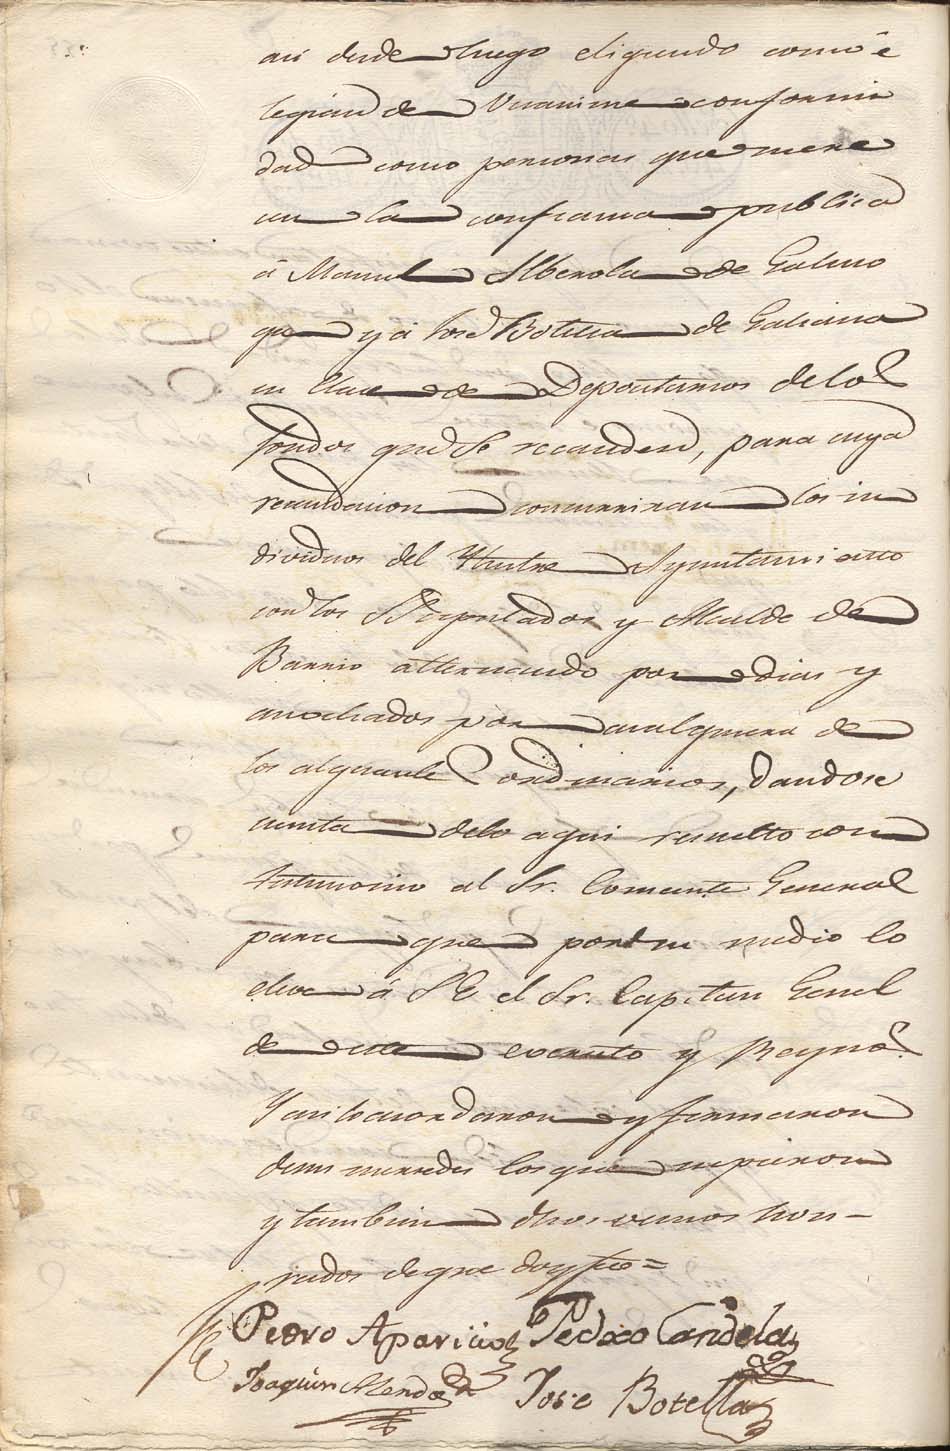 asi desde luego eligiendo como é
legian de Vnanime conformi
dad como personas que mere
cen la confianza publica
á Manuel Alberola de Galino
ga y á José Botella de Galiana
en Clace de Depocitarios de los
fondos que se recauden, para cuya
recaudacion concurriran los in
dividuos del Ilustre Ayuntamiento
con los Diputados y Alcalde de
Barrio alternando por dias y
asociados por cualquiera de
los alguaciles ordinarios, dandose
cuenta delo aqui resuelto con
testimonio al Sr. Comante General
para que por su medio lo
eleve á S E el Sr. Capitan Genel
de este exercito y Reyno.
Y asi lo acordaron y firmaron
de sus mercedes los que supieron
y tambien dhos vecinos hon-
rados de que doy fee =
Pedro Aparicio Pedro Candela
Joaquin Jose Botella